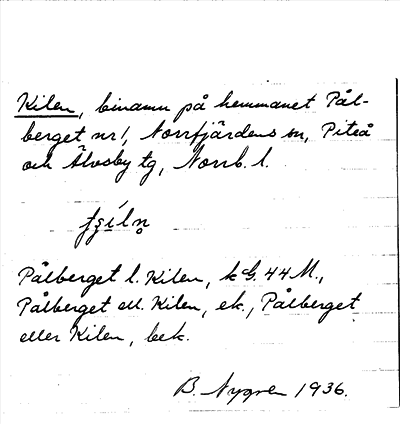 Kilen, binamn på hemmanet Pål-
berget nr 1, Norrfjärdens sn, Piteå
och Älvsby tg, Norrb. l.
Pålberget l. Kilen, kG. 44 M.,
Pålberget ell. Kilen, ek., Pålberget
eller Kilen, bek.
B. Nygren 1936.